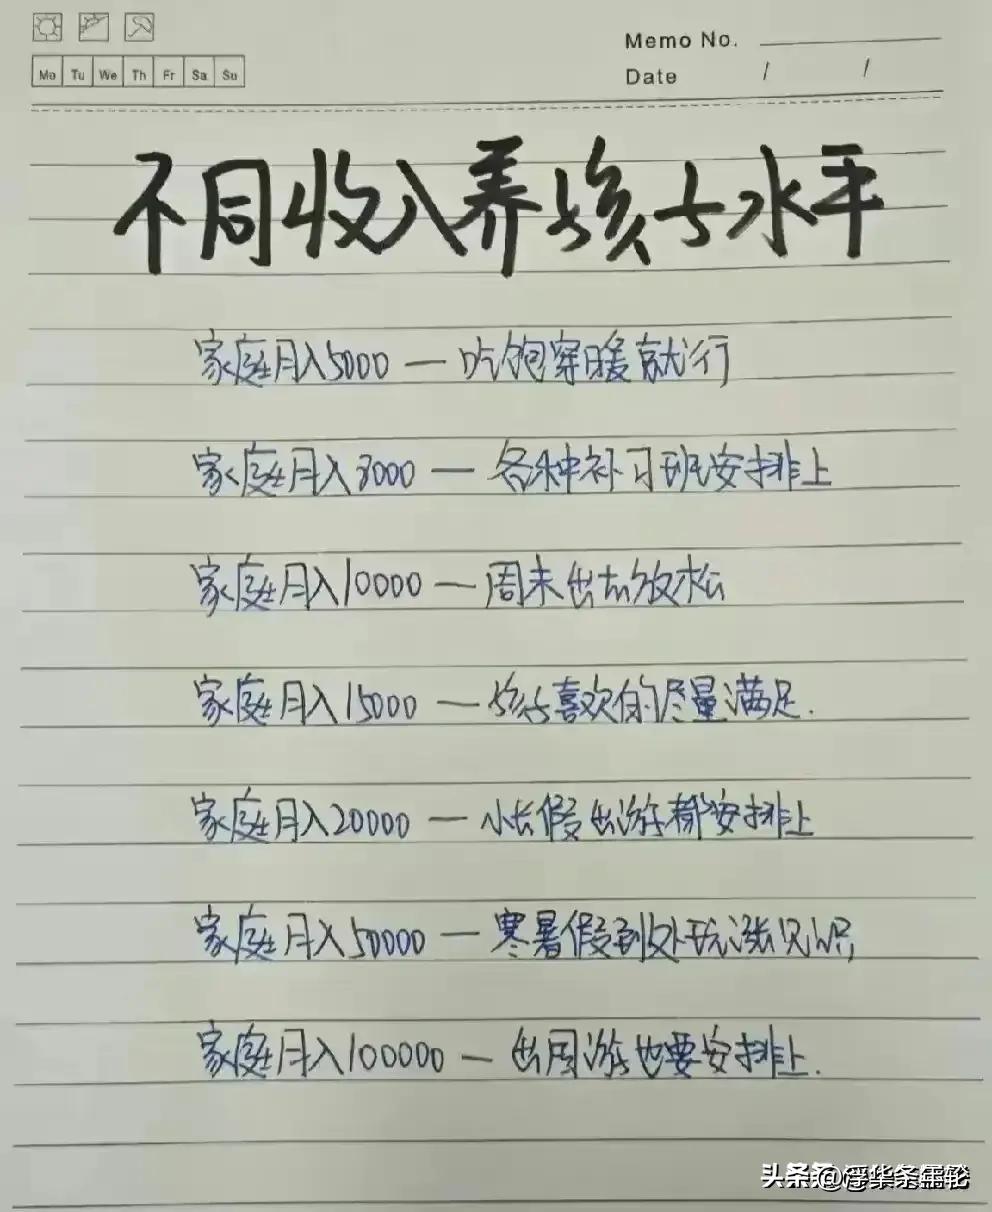 Memo No.
Mo Tu We Th Fr Sa Su
Date / /
不同收入养孩子水平
家庭月入5000 — 吃饱穿暖就行
家庭月入8000 — 各种补习班安排上
家庭月入10000 — 周末出去放松
家庭月入15000 — 孩子喜欢的尽量满足.
家庭月入20000 — 小长假出游都安排上
家庭月入50000 — 寒暑假到处玩涨见识,
家庭月入100000 — 出国游也要安排上.
头条 @浮华条